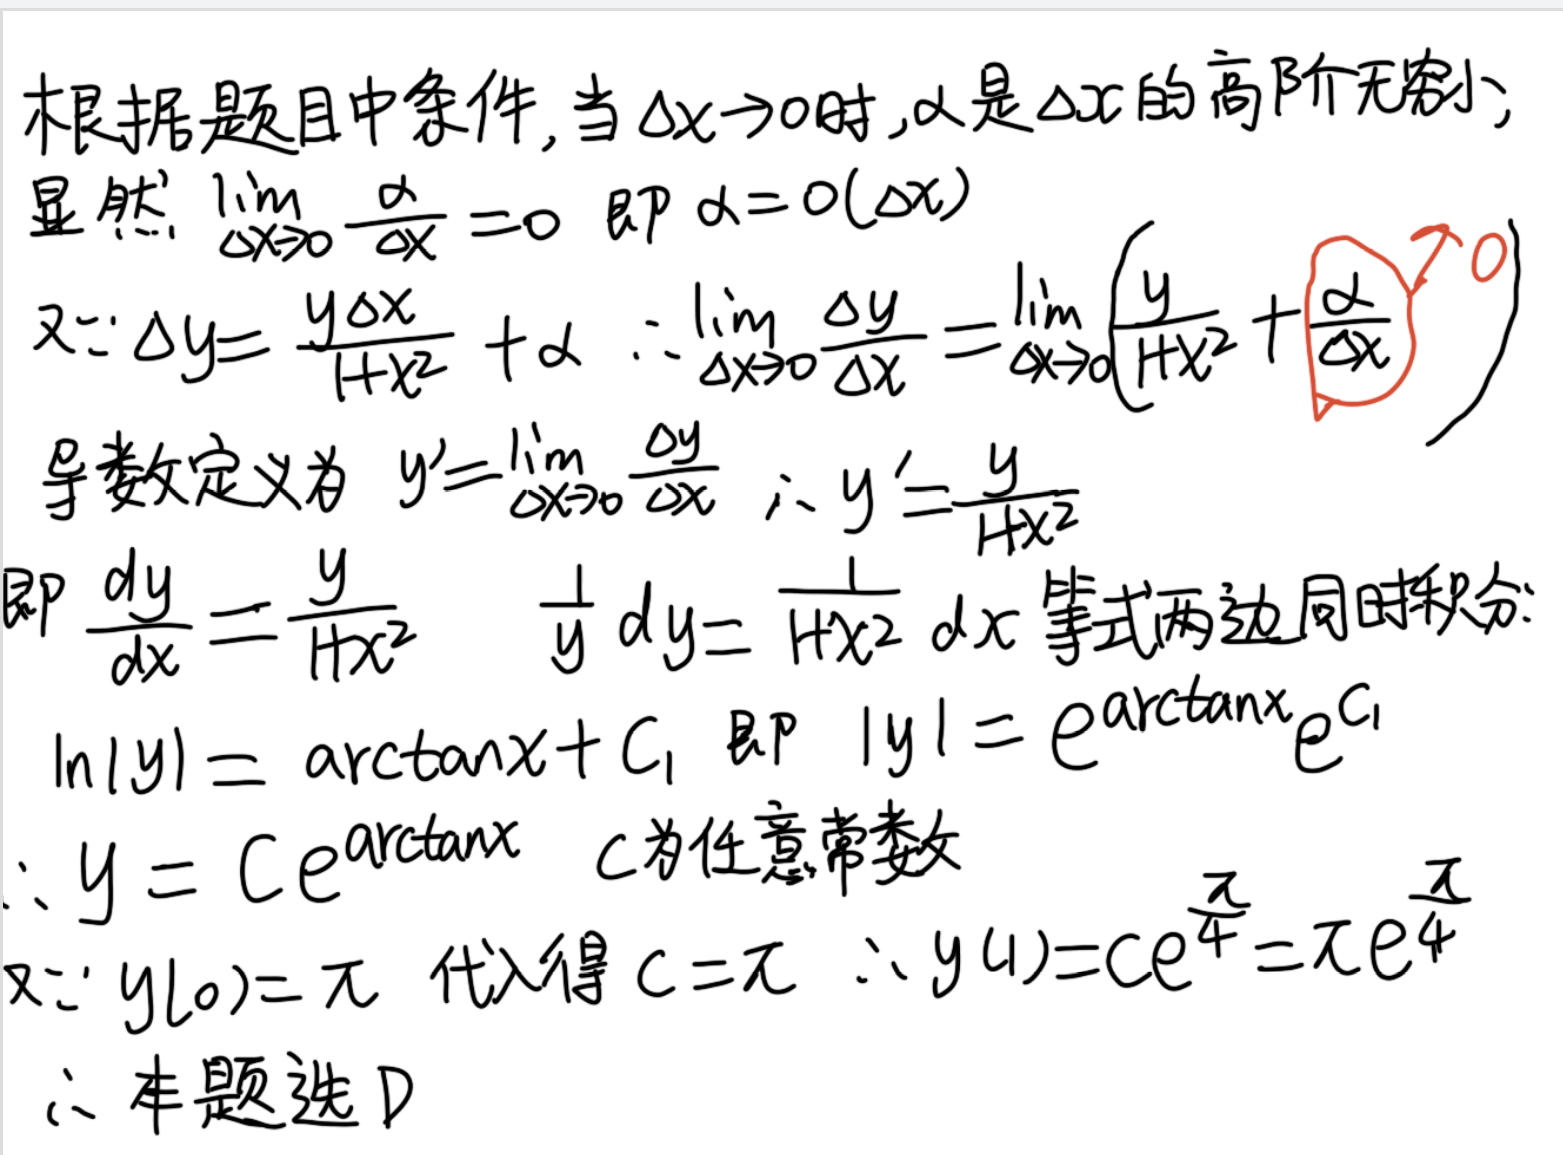 根据题目中条件,当Δx→0时,α是Δx的高阶无穷小,
显然 lim Δx→0 α/Δx =0 即 α=o(Δx)
又∵Δy= yΔx/(1+x²) +α ∴ lim Δx→0 Δy/Δx = lim Δx→0 ( y/(1+x²) + α/Δx ) 0
导数定义为 y′= lim Δx→0 Δy/Δx ∴ y′= y/(1+x²)
即 dy/dx = y/(1+x²) 1/y dy= 1/(1+x²) dx 等式两边同时积分:
ln|y|= arctanx+C₁ 即 |y|= e^(arctanx) e^(C₁)
∴ y = Ce^(arctanx) C为任意常数
又∵ y(0)=π 代入得 C=π ∴ y(1)=Ce^(π/4)=πe^(π/4)
∴ 本题选 D